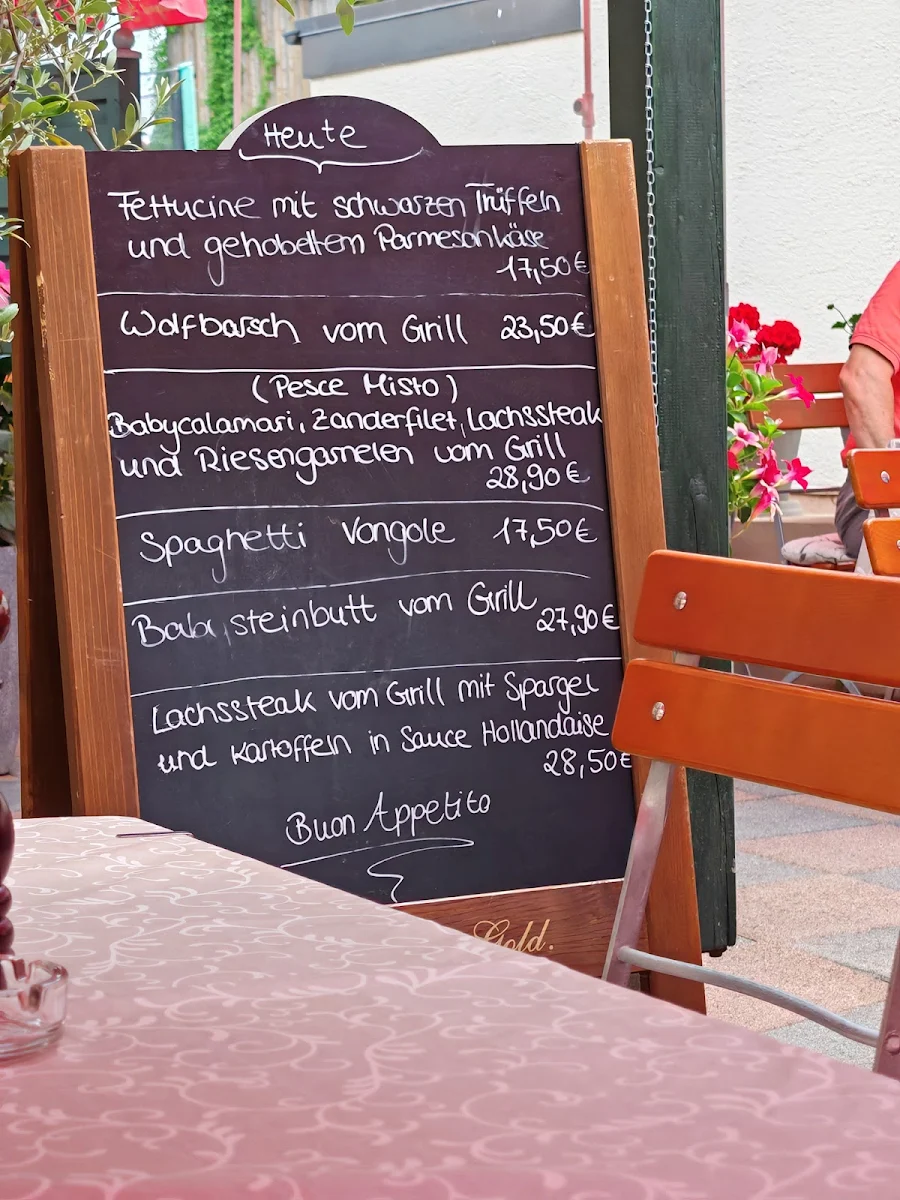 Heute
Fettucine mit schwarzen Trüffeln
und gehobeltem Parmesankäse
17,50€
Wolfbarsch vom Grill 23,50€
(Pesce Misto)
Babycalamari, Zanderfilet, Lachssteak
und Riesengarnelen vom Grill
28,90€
Spaghetti Vongole 17,50€
Babysteinbutt vom Grill
27,90€
Lachssteak vom Grill mit Spargel
und Kartoffeln in Sauce Hollandaise
28,50€
Buon Appetito
Gold.